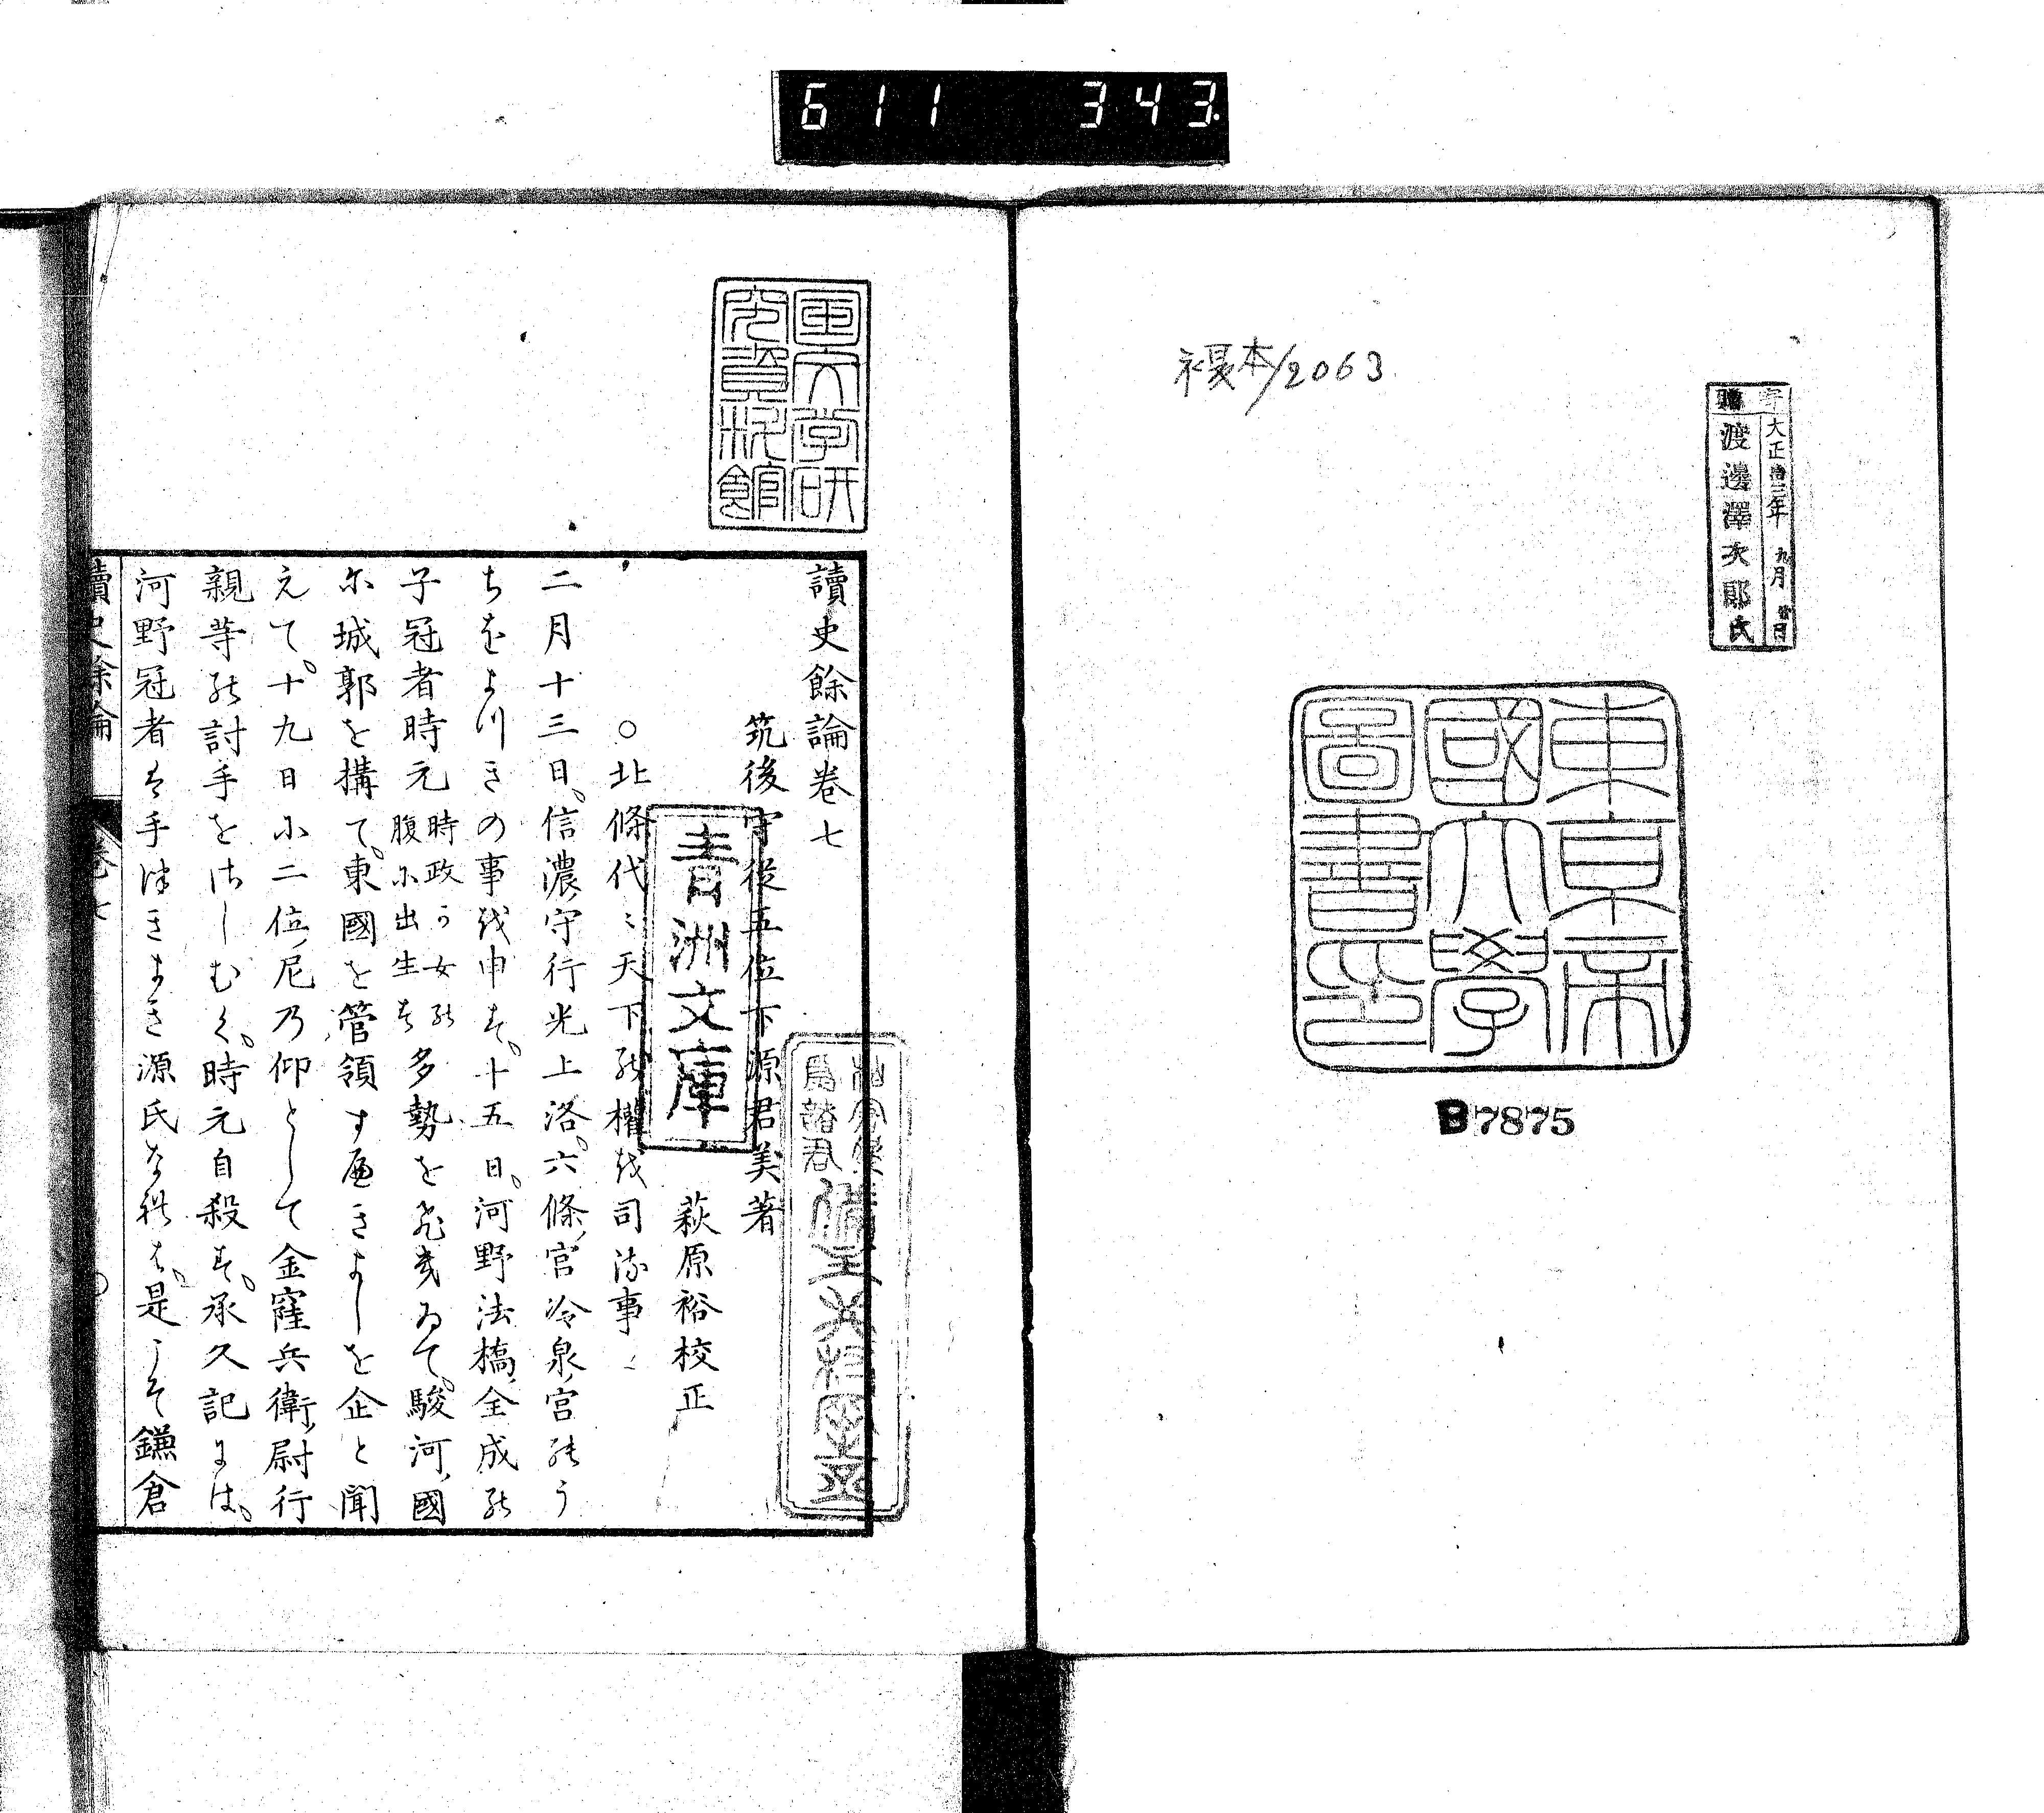 611 343.
寄贈
渡邊澤次郎氏
大正拾三年 九月
複製本/2063
東京帝
國大學
圖書印
B7875
國文学研
究資料館
讀史餘論卷七
筑後守從五位下源君美著
萩原裕校正
青洲文庫
○北條代〻天下能權越司流事
二月十三日。信濃守行光上洛。六條宮冷泉宮能う
ちをよ川きの事越申春。十五日。河野法橋全成能
子冠者時元
時政可女能
腹尓出生春
多勢を飛幾ゐて。駿河國
尓城郭を搆て。東國を管領すべきよしを企と聞
えて。十九日尓二位尼乃仰として金窪兵衛尉行
親等能討手をはしむく。時元自殺春。承久記には。
河野冠者は手はきよき源氏な禮は。是こそ鎌倉
讀史餘論
卷七